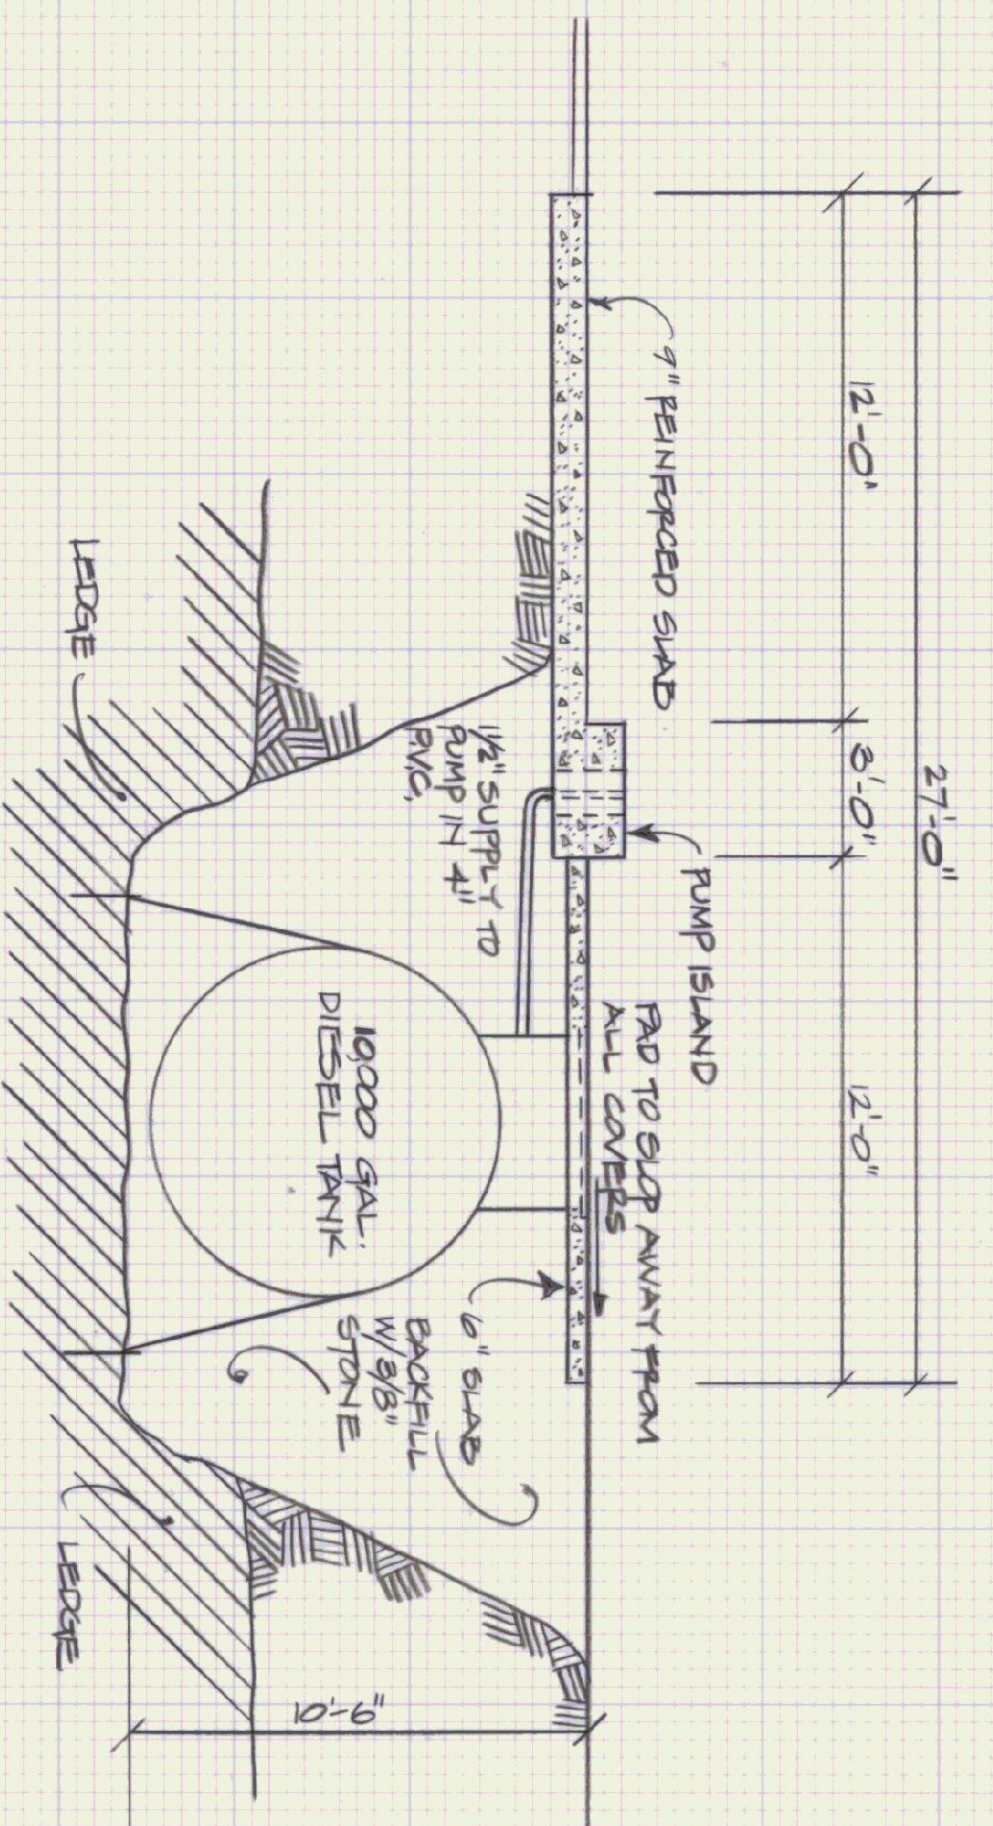 27'-0"
12'-0"
3'-0"
12'-0"
9" REINFORCED SLAB
PUMP ISLAND
PAD TO SLOP AWAY FROM
ALL COVERS
1½" SUPPLY TO
PUMP IN 4"
P.V.C.
6" SLAB
BACKFILL
W/ 3/8"
STONE
10,000 GAL.
DIESEL TANK
10'-9"
LEDGE
LEDGE